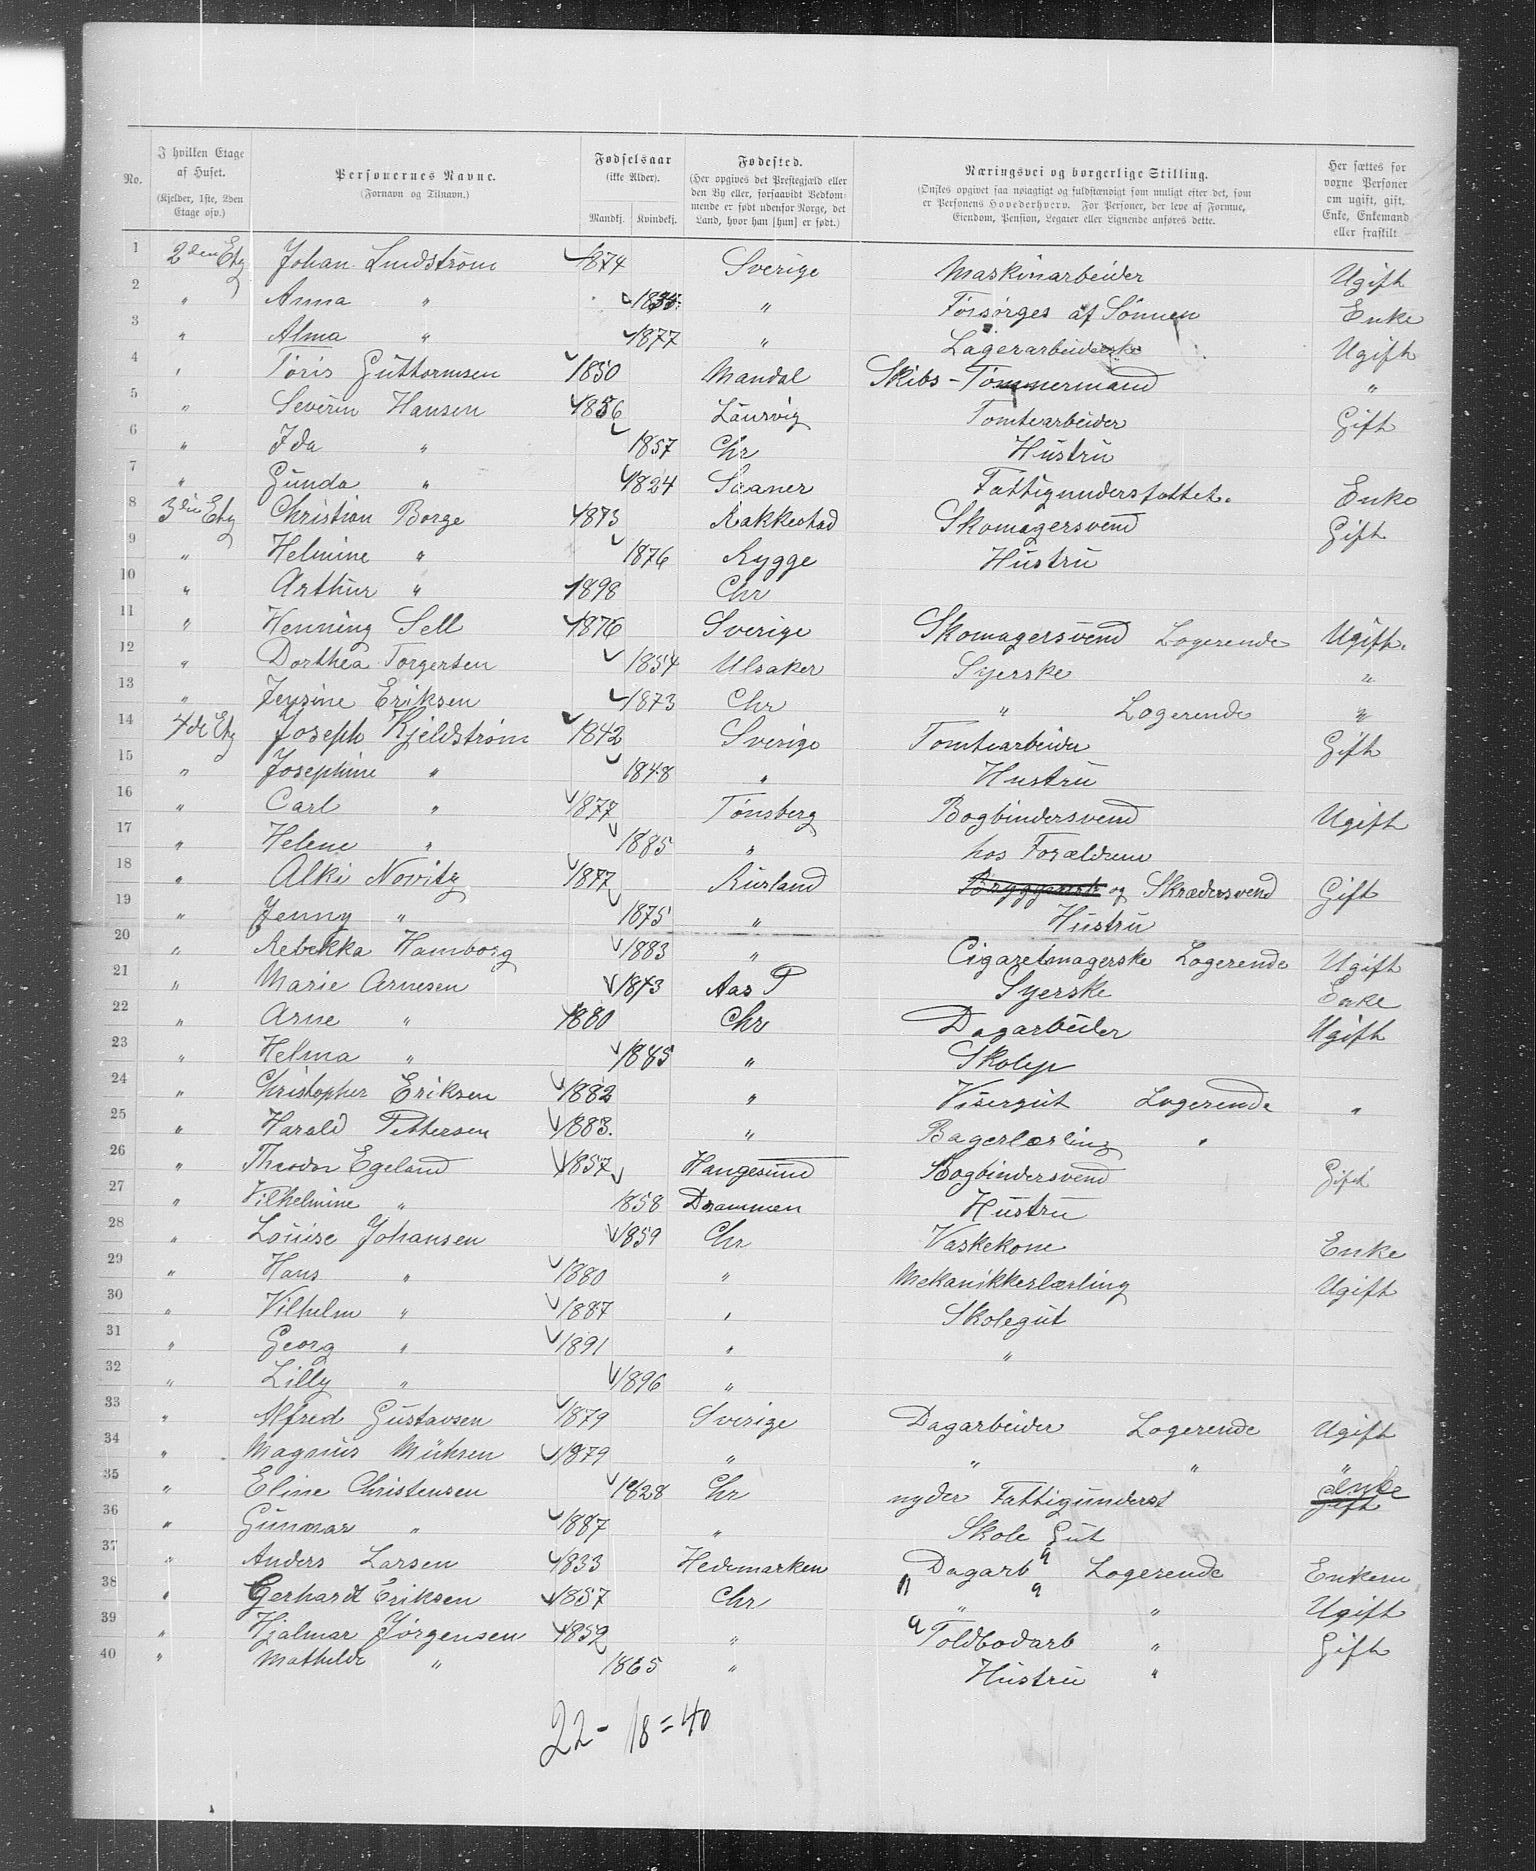 No.
I hvilken Etage af Huset.
(Kjelder, 1ste, 2den Etage osv.)
Personernes Navne.
(Fornavn og Tilnavn.)
Fødselsaar
(ikke Alder).
Mandkj. Kvindekj.
Fødested.
(Her opgives det Prestegjæld eller den By eller, forsaavidt Vedkommende er født udenfor Norge, det Land, hvor han [hun] er født.)
Næringsvei og borgerlige Stilling.
(Ønskes opgivet saa nøiagtigt og fuldstændigt som muligt efter det, som er Personens Hovederhverv. For Personer, der leve af Formue, Eiendom, Pension, Legater eller Lignende anføres dette.
Her sættes for voxne Personer om ugift, gift, Enke, Enkemand eller fraskilt
1 2den Etg Johan Lindstrøm 1874 Sverige Maskinarbeider Ugift
2 " Anna " " Forsørges af Sønnen Enke
3 " Alma " 1877 " Lagerarbeiderske Ugift
4 " Tøris Guttormsen 1850 Mandal Skibs-Tømmermand "
5 " Severin Hansen 1856 Laurvig Tomtearbeider Gift
6 " Ida " 1857 Chr Hustru
7 " Gunda " 1824 Saaner Fattigunderstøttet. Enke
8 3die Etg Christian Borge 1873 Rakkestad Skomagersvend Gift
9 " Helmine " 1876 Rygge Hustru
10 " Arthur " 1898 Chr
11 " Henning Sell 1876 Sverige Skomagersvend Logerende Ugift.
12 " Dorthea Torgersen 1854 Ulsaker Syerske "
13 " Jensine Eriksen 1873 Chr " Logerende "
14 4de Etg Joseph Kjeldstrøm 1842 Sverige Tomtearbeider Gift
15 " Josephine " 1848 " Hustru
16 " Carl " 1877 Tønsberg Bogbindersvend Ugift
17 " Helene " 1885 " hos Forældrene
18 " Alki Novitz 1877 Kurland og Skrædersvend Gift
19 " Jenny " 1875 " Hustru
20 " Rebekka Hamborg 1883 " Cigaretmagerske Logerende Ugift
21 " Marie Arnesen 1843 Aas P Syerske Enke
22 " Arne " 1880 Chr Dagarbeider Ugift
23 " Helma " 1885 " Skolep
24 " Christopher Eriksen 1882 " Visergut Logerende "
25 " Harald Pettersen 1883. " Bagerlærling "
26 " Theodor Egeland 1857 Haugesund Bogbindersvend Gift
27 " Vilhelmine " 1858 Drammen Hustru
28 " Louise Johansen 1859 Chr Vaskekone Enke
29 " Hans " 1880 " Mekanikkerlærling Ugift
30 " Vilhelm " 1887 " Skolegut
31 " Georg " 1891 " "
32 " Lilly " 1896 "
33 " Alfred Gustavsen 1879 Sverige Dagarbeider Logerende Ugift
34 " Magnus Müksen 1879 " " " "
35 " Eline Christensen 1828 Chr nyder Fattigunderst Gift enke
36 " Gunnar " 1887 " Skole Gut
37 " Anders Larsen 1833 Hedemarken Dagarb Logerende Enkem
38 " Gerhardt Eriksen 1857 Chr " " Ugift
39 " Hjalmar Jørgensen 1852 " Toldbodarb " Gift
40 " Mathilde " 1865 " Hustru "
22 - 18 = 40